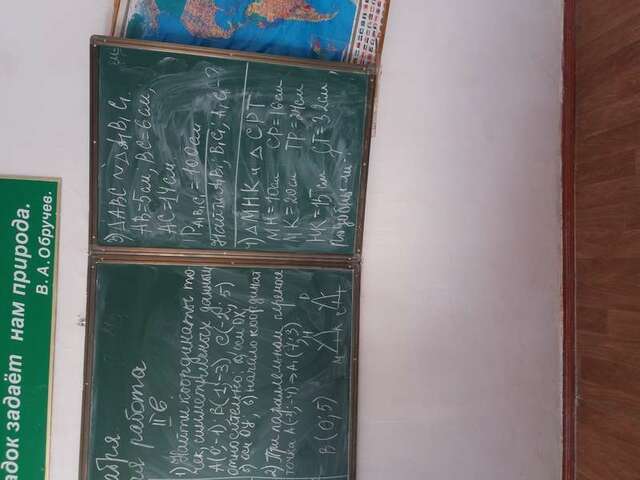 адок задаёт нам природа.
В. А. Обручев.
абря
я работа
II в.
1) Найти координаты то-
чек, симметричных данным
A(0;-1) B(1;-3) C(-2; 5)
относительно: а) оси OX;
б) оси OY; в) начало координат
2) При параллельном переносе
точка A(-2;-4) → A₁(-1;3)
B(0;5)
M
H
K
C
P
3) △ABC ∾ △A₁B₁C₁.
AB=5см, BC=6см,
AC=14см
P A₁B₁C₁ = 100см
Найти A₁B₁; B₁C₁; A₁C₁-?
4) △MHK и △CPT
MH=10см CP=16см
MK=20см TP=24см
HK=15см CT=32см
Подобны ли-?